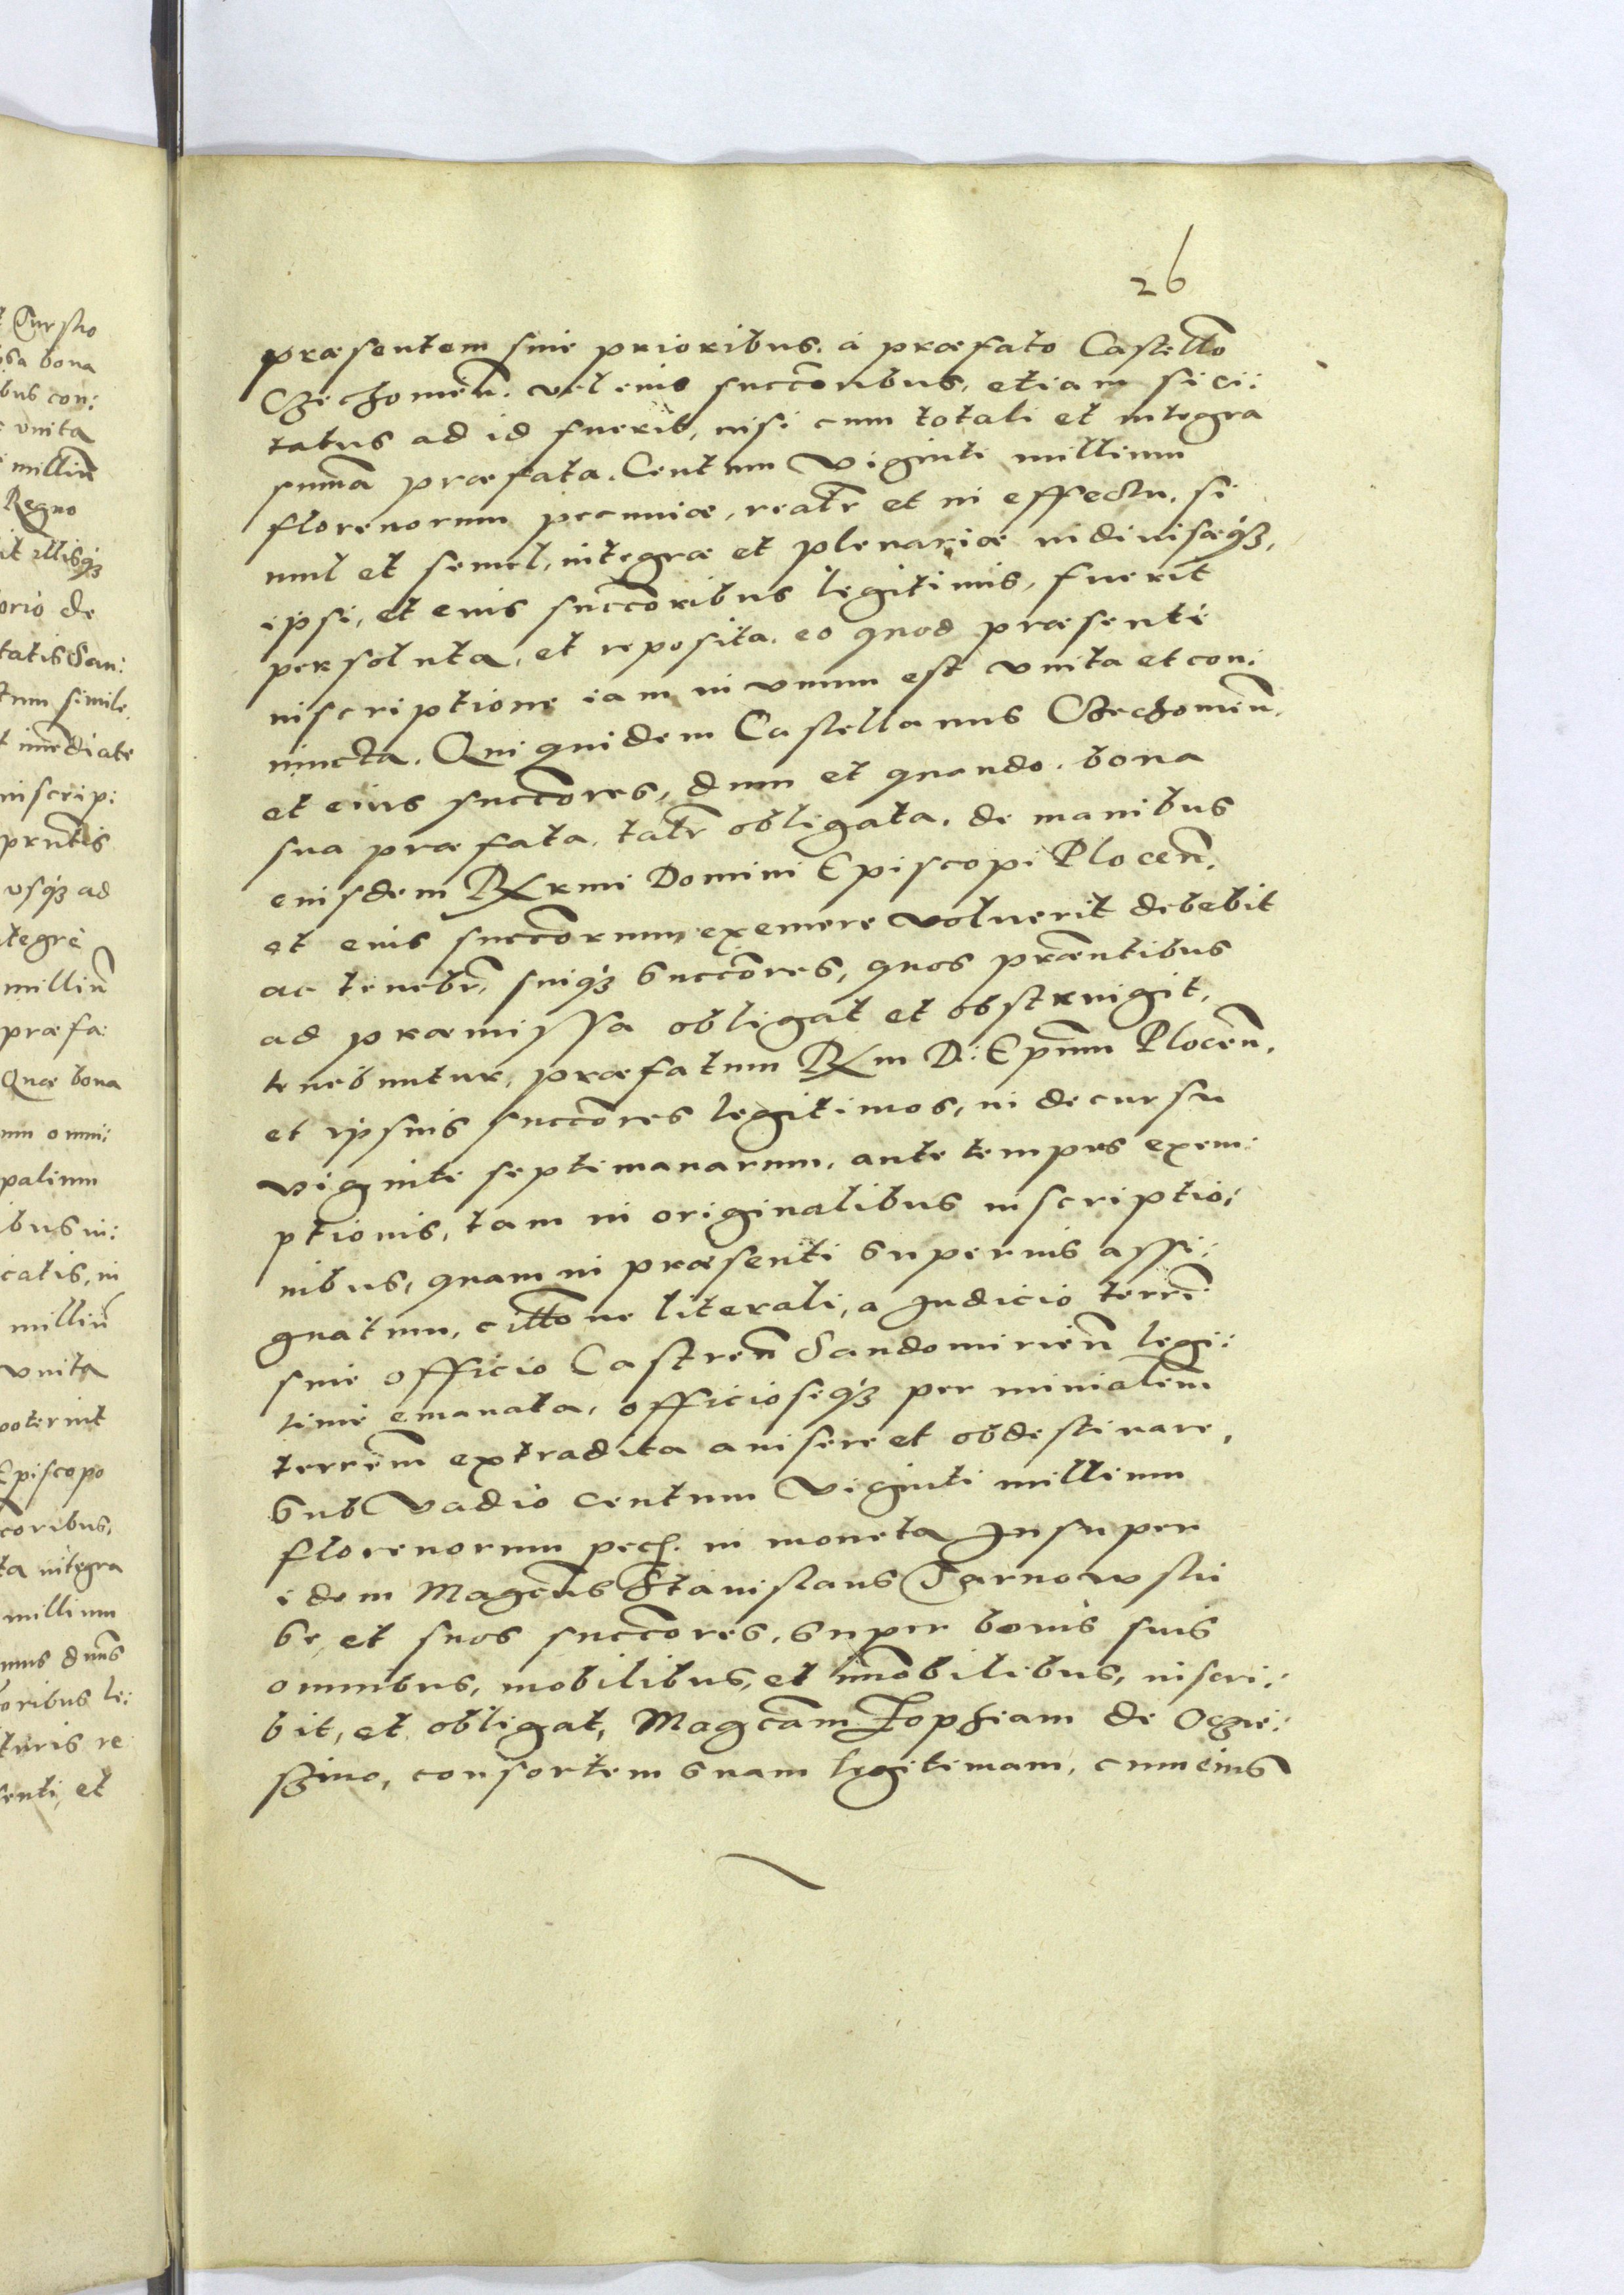 26
præsentem siue prioribus. á præfato Castellõ
Czechomen̄. vel eius succõribus, etiam si ci:
tatus ad id fuerit, nisi cum totali et integra
summa præfata. Centum Viginti millium
florenorum pecuniæ, realr̄ et in effectu, si
mul et semel, integræ et plenariæ indiuisæq3,
ipsi, et eius succõribus legitimis, fuerit
persoluta, et reposita. eo quod præsenti
inscriptione iam in vnum est vnita et con:
iuncta. Qui quidem Castellanus Czechomen̄.
et eius succõres, dum et quando. bona
sua præfata. talr̄ obligata. de manibus
eiusdem Rx̄rmi Domini Episcopi Plocen̄.
et eius succõrum exemere voluerit debebit
ac tenebr̄, suiq3 succõres, quos præntibus
ad præmissa obligat et obstringit.
tenebuntur, præfatum Rx̄m D: Epūm Plocen̄.
et ipsius succõres legitimos, in decursu
viginti septimanarum. ante tempus exem:
ptionis, tam in originalibus inscriptio:
nibus, quam in præsenti superius assi:
gnatum, cittõne literali, a Judicio terrē
siue officio Castren̄ Sandomirien̄ legi:
time emanata, officioseq3 per minialem̄
terrēm extradita auisere et obdestinare,
sub vadio centum Viginti millium
florenorum pech. in moneta Insuper
idem Magcūs Stanislaus Tarnowskii
se, et suos succõres, super bonis suis
omnibus, mobilibus, et im̄obilibus, inscri:
bit, et obligat, Magcam Zophiam de Oczie:
szino, consortem suam legitimam, cum eius